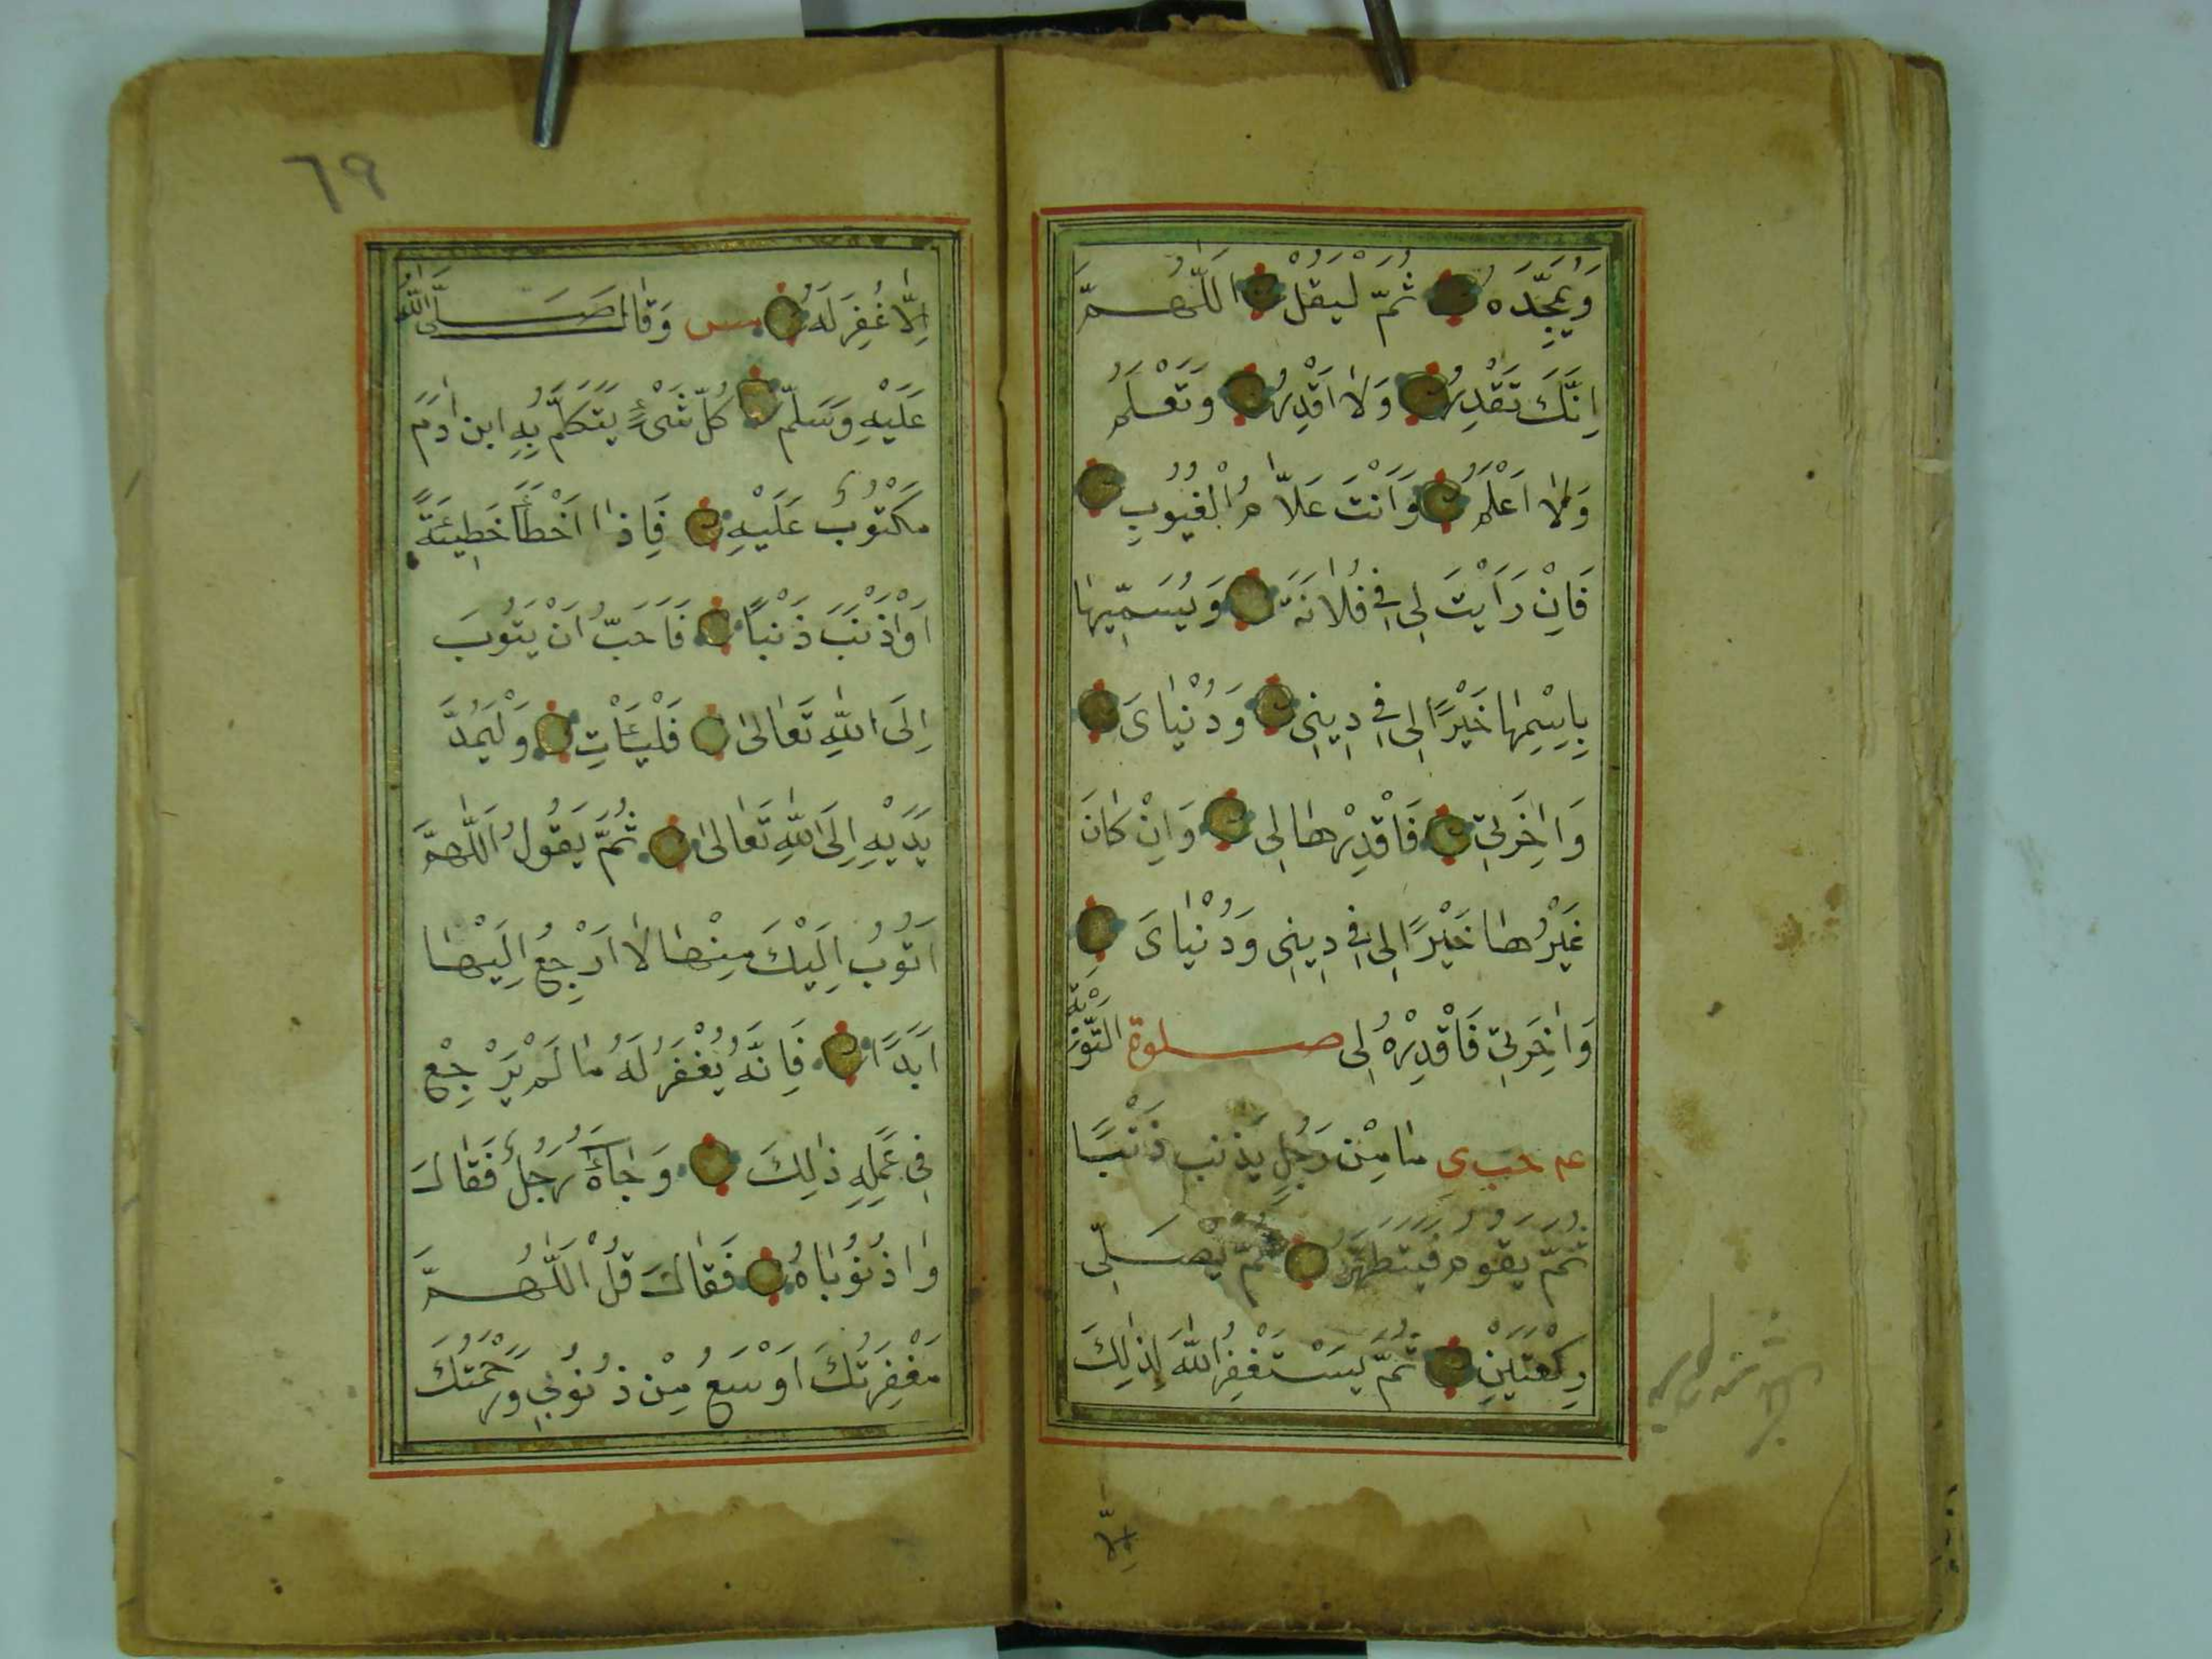 وَيُمَجِّدَهُ ثُمَّ لْيَقُلْ اَللّٰهُمَّ
اِنَّكَ تَقْدِرُ وَلَا اَقْدِرُ وَتَعْلَمُ
وَلَا اَعْلَمُ وَاَنْتَ عَلَّامُ الْغُيُوبِ
فَاِنْ رَاَيْتَ لِى فِى فُلَانَةَ وَيُسَمِّيهَا
بِاِسْمِهَا خَيْرًا لِى فِى دِينِى وَدُنْيَاىَ
وَاٰخِرَتِى فَاقْدِرْهَا لِى وَاِنْ كَانَ
غَيْرُهَا خَيْرًا لِى فِى دِينِى وَدُنْيَاىَ
وَاٰخِرَتِى فَاقْدِرْهُ لِى صلوة التَّوْبَةِ
عه حب ى مَا مِنْ رَجُلٍ يُذْنِبُ ذَنْبًا
ثُمَّ يَقُومُ فَيَتَطَهَّرُ ثُمَّ يُصَلِّى
رَكْعَتَيْنِ ثُمَّ يَسْتَغْفِرُ اللّٰهَ لِذٰلِكَ
اِلَّا
٦٩
اِلَّا غُفِرَ لَهُ مس وَقَالَ صَلَّى اللّٰهُ
عَلَيْهِ وَسَلَّمَ كُلُّ شَىْءٍ يَتَكَلَّمُ بِهِ ابن اٰدَمَ
مَكْتُوبٌ عَلَيْهِ فَاِذَا اَخْطَاَ خَطِيئَةً
اَوْ اَذْنَبَ ذَنْبًا فَاَحَبَّ اَنْ يَتُوبَ
اِلَى اللّٰهِ تَعَالٰى فَلْيَاْتِ وَلْيَمُدَّ
يَدَيْهِ اِلَى اللّٰهِ تَعَالٰى ثُمَّ يَقُولُ اَللّٰهُمَّ
اَتُوبُ اِلَيْكَ مِنْهَا لَا اَرْجِعُ اِلَيْهَا
اَبَدًا فَاِنَّهُ يُغْفَرُ لَهُ مَا لَمْ يَرْجِعْ
فِى عَمَلِهِ ذٰلِكَ وَجَاءَهُ رَجُلٌ فَقَالَ
وَا ذُنُوبَاهُ فَقَالَ قُلْ اَللّٰهُمَّ
مَغْفِرَتُكَ اَوْسَعُ مِنْ ذُنُوبِى وَرَحْمَتُكَ